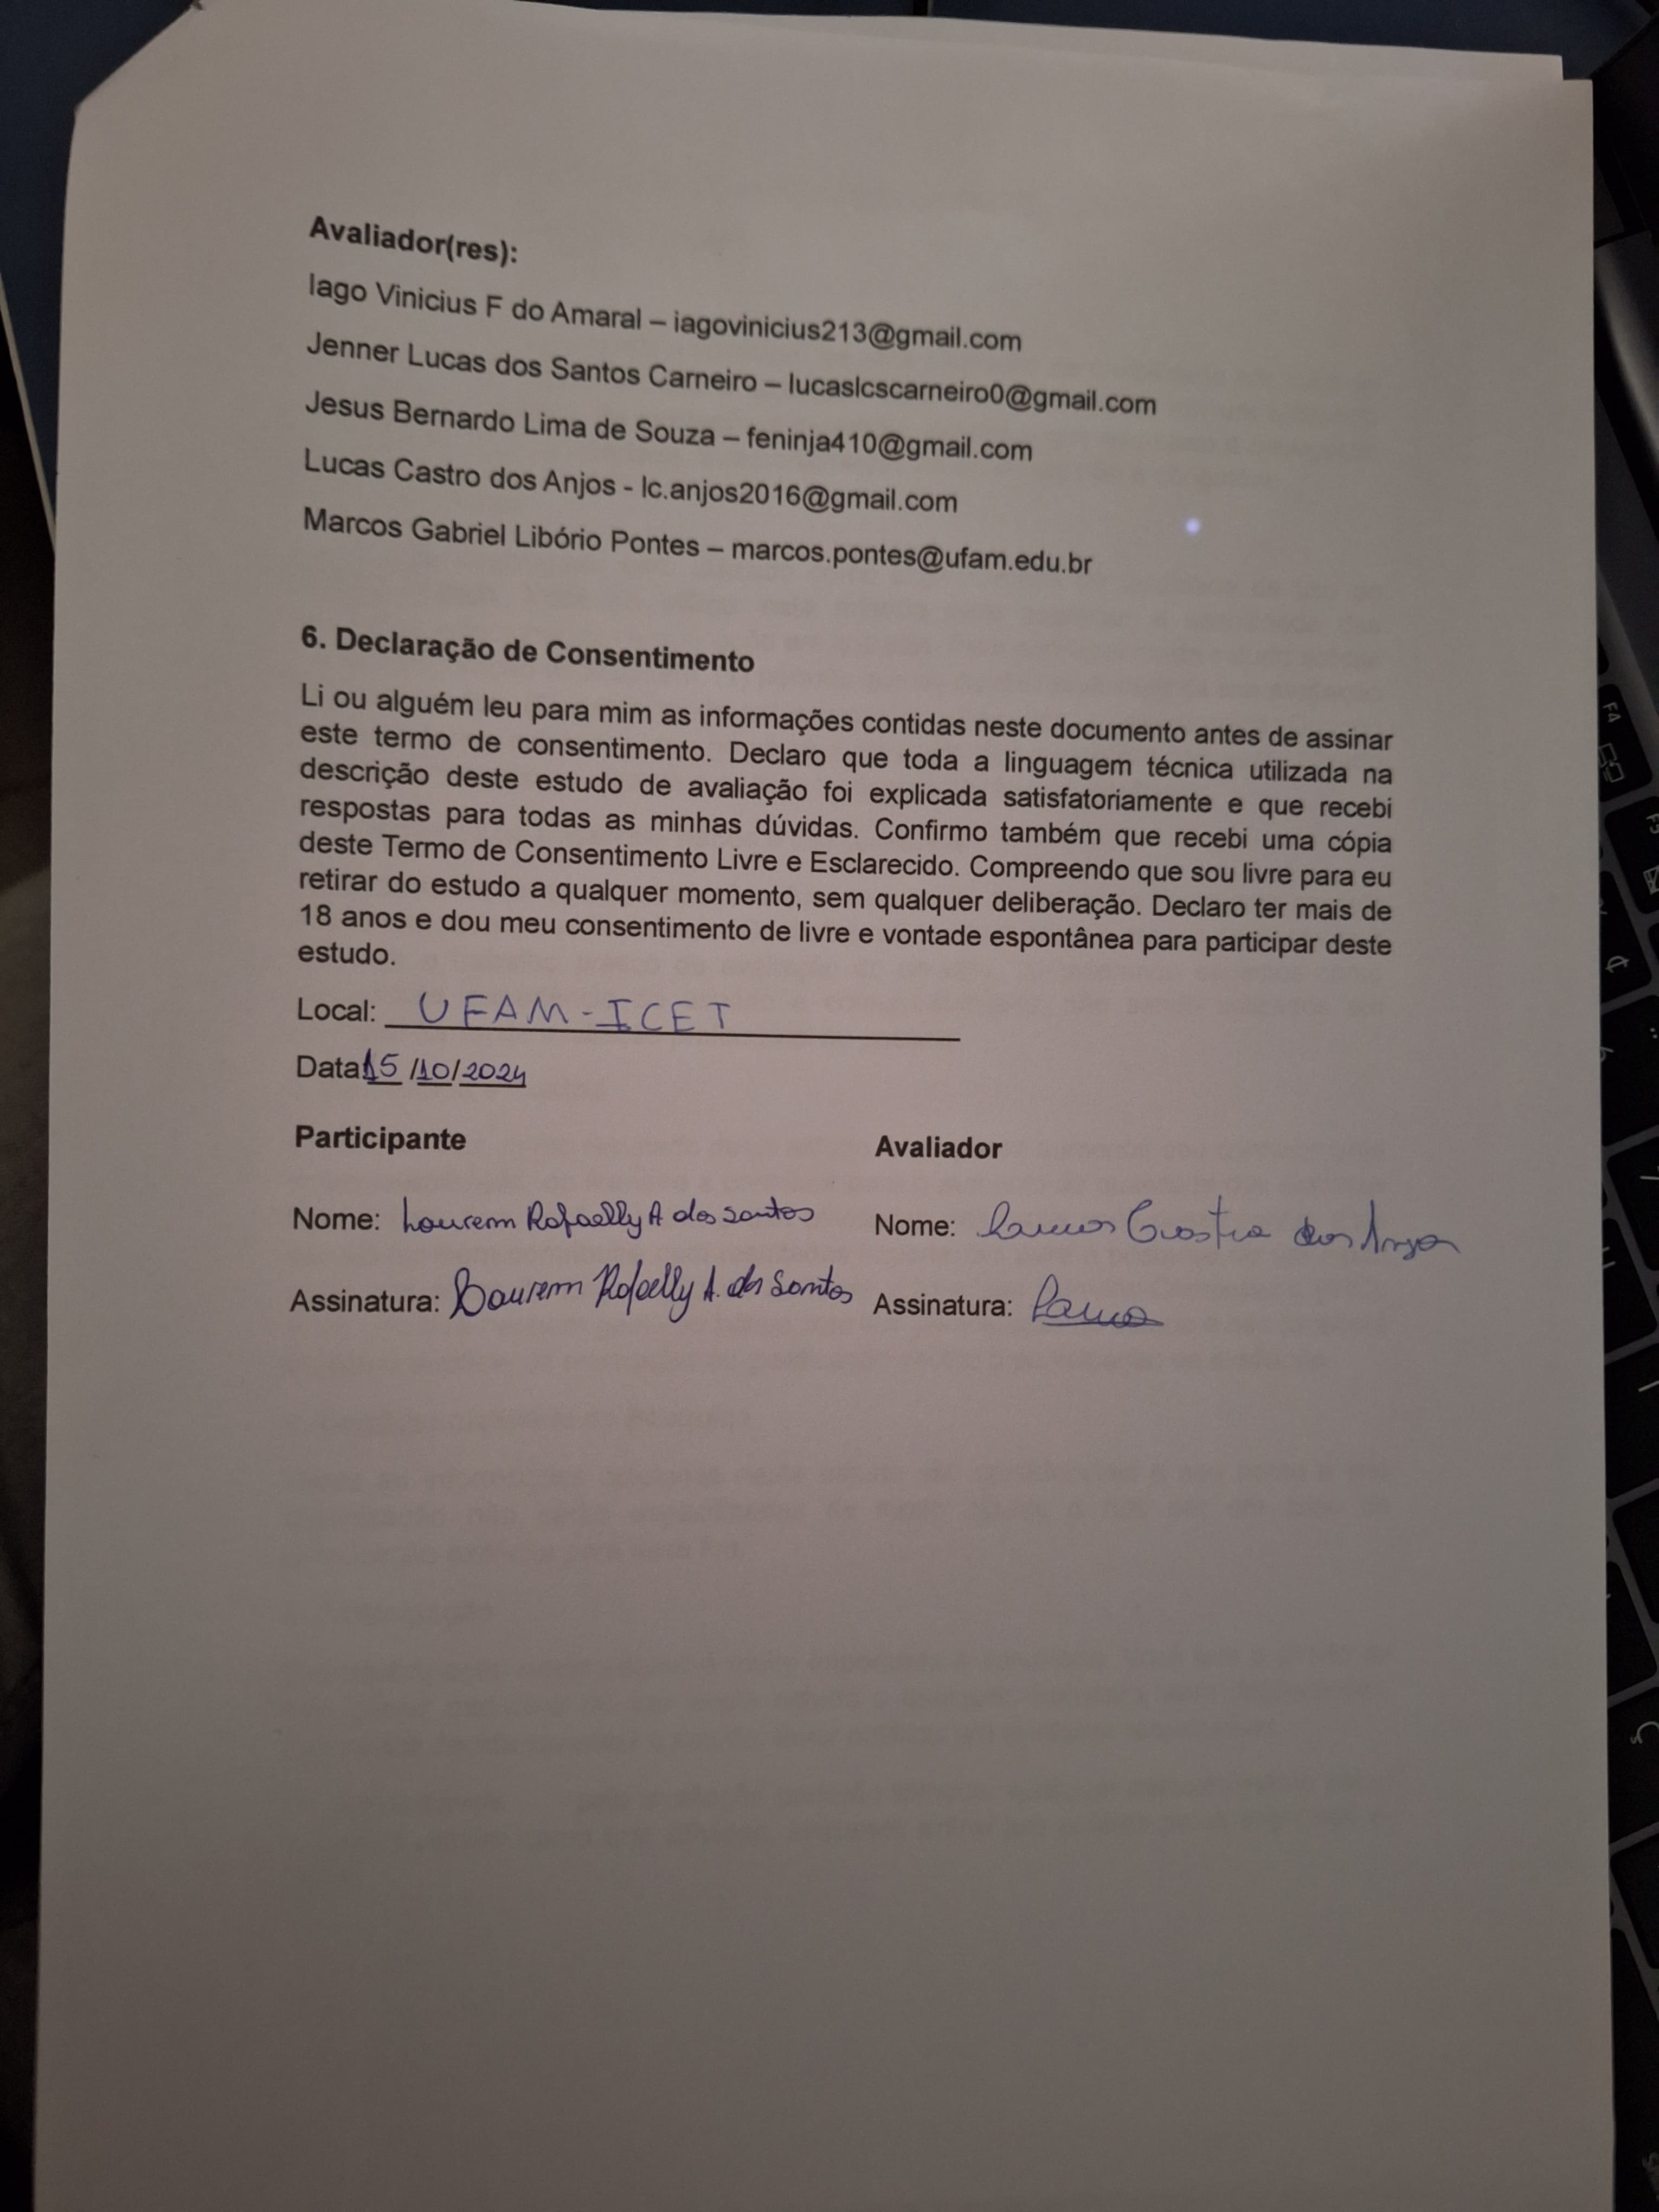 Avaliador(res):
Iago Vinicius F do Amaral – iagovinicius213@gmail.com
Jenner Lucas dos Santos Carneiro – lucaslcscarneiro0@gmail.com
Jesus Bernardo Lima de Souza – feninja410@gmail.com
Lucas Castro dos Anjos - lc.anjos2016@gmail.com
Marcos Gabriel Libório Pontes – marcos.pontes@ufam.edu.br
6. Declaração de Consentimento
Li ou alguém leu para mim as informações contidas neste documento antes de assinar
este termo de consentimento. Declaro que toda a linguagem técnica utilizada na
descrição deste estudo de avaliação foi explicada satisfatoriamente e que recebi
respostas para todas as minhas dúvidas. Confirmo também que recebi uma cópia
deste Termo de Consentimento Livre e Esclarecido. Compreendo que sou livre para eu
retirar do estudo a qualquer momento, sem qualquer deliberação. Declaro ter mais de
18 anos e dou meu consentimento de livre e vontade espontânea para participar deste
estudo.
Local: UFAM-ICET
Data: 15/10/2024
Participante
Avaliador
Nome: Lourem Rafaelly A dos Santos
Nome: Lucas Castro dos Anjos
Assinatura: Lourem Rafaelly A. dos Santos
Assinatura: Lucas